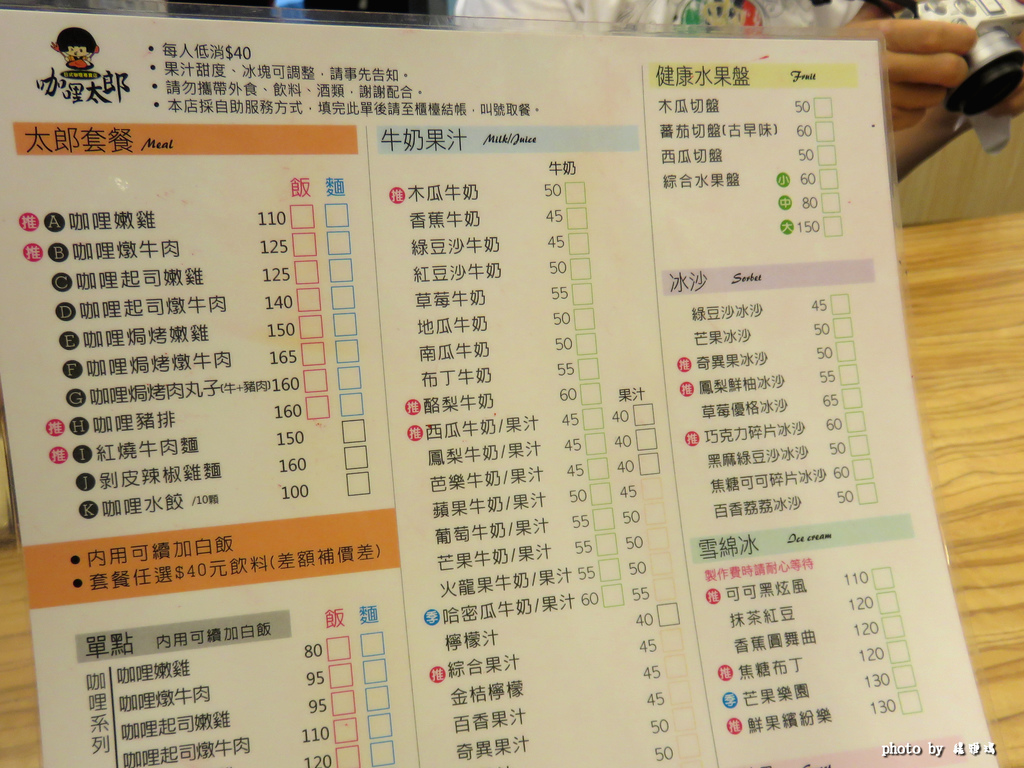 咖哩太郎
日式咖哩專賣店
• 每人低消$40
• 果汁甜度、冰塊可調整，請事先告知。
• 請勿攜帶外食、飲料、酒類，謝謝配合。
• 本店採自助服務方式，填完此單後請至櫃檯結帳，叫號取餐。
太郎套餐 Meal
飯 麵
推 A 咖哩嫩雞 110
推 B 咖哩燉牛肉 125
C 咖哩起司嫩雞 125
D 咖哩起司燉牛肉 140
E 咖哩焗烤嫩雞 150
F 咖哩焗烤燉牛肉 165
G 咖哩焗烤肉丸子(牛+豬肉) 160
推 H 咖哩豬排 160
推 I 紅燒牛肉麵 150
J 剝皮辣椒雞麵 160
K 咖哩水餃 /10顆 100
• 內用可續加白飯
• 套餐任選$40元飲料(差額補價差)
單點 內用可續加白飯 飯 麵
咖哩系列
咖哩嫩雞 80
咖哩燉牛肉 95
咖哩起司嫩雞 95
咖哩起司燉牛肉 110
120
牛奶果汁 Milk/Juice
牛奶
推 木瓜牛奶 50
香蕉牛奶 45
綠豆沙牛奶 45
紅豆沙牛奶 50
草莓牛奶 55
地瓜牛奶 50
南瓜牛奶 50
布丁牛奶 55
推 酪梨牛奶 60 果汁
推 西瓜牛奶/果汁 45 40
鳳梨牛奶/果汁 45 40
芭樂牛奶/果汁 45 40
蘋果牛奶/果汁 50 45
葡萄牛奶/果汁 55 50
芒果牛奶/果汁 55 50
火龍果牛奶/果汁 55 50
季 哈密瓜牛奶/果汁 60 55
檸檬汁 40
推 綜合果汁 45
金桔檸檬 45
百香果汁 45
奇異果汁 50
50
健康水果盤 Fruit
木瓜切盤 50
蕃茄切盤(古早味) 60
西瓜切盤 50
綜合水果盤 小 60
中 80
大 150
冰沙 Sorbet
綠豆沙冰沙 45
芒果冰沙 50
推 奇異果冰沙 50
推 鳳梨鮮柚冰沙 55
草莓優格冰沙 65
推 巧克力碎片冰沙 60
黑麻綠豆沙冰沙 50
焦糖可可碎片冰沙 60
百香荔荔冰沙 50
雪綿冰 Ice cream
製作費時請耐心等待
推 可可黑炫風 110
抹茶紅豆 120
香蕉圓舞曲 120
推 焦糖布丁 120
季 芒果樂園 130
推 鮮果繽紛樂 130
photo by